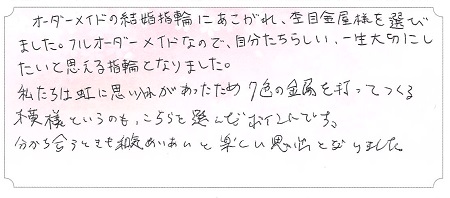 オーダーメイドの結婚指輪にあこがれ、杢目金屋様を選び
ました。フルオーダーメイドなので、自分たちらしい、一生大切にし
たいと思える指輪となりました。
私たちは虹に思い入れがあったため7色の金属を打ってつくる
木模様というのも、こちらを選んだポイントです。
分かち合うときも和気あいあいと楽しい思い出となりました。